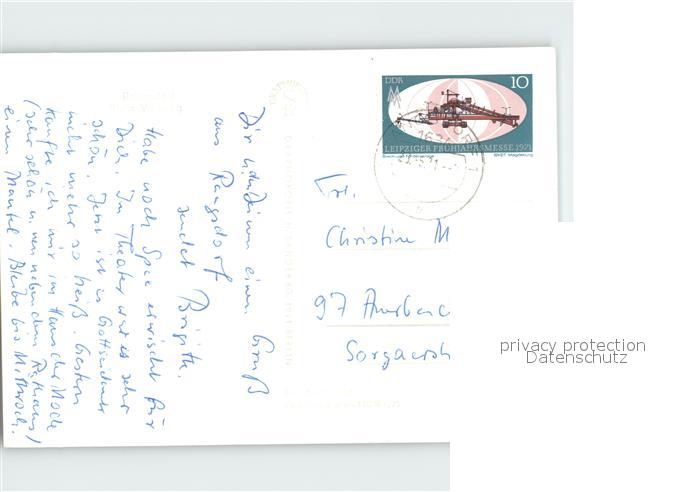 DDR
10
LEIPZIGER FRÜHJAHRSMESSE 1971
Dir u. Deinen einen Gruß
aus Rangsdorf
sendet Brigitte.
Habe noch Spee erwischt für
Dich. Im Theater war es sehr
schön. Jetzt ist es Gottseidank
nicht mehr so heiß. Gestern
kaufte ich mir im Haus der Mode
(sehr schön u. neu neben dem Rathaus)
einen Mantel. Bleibe bis Mittwoch.
Frl.
Christine M
97 Auerbac
Sorgaerst
privacy protection
Datenschutz